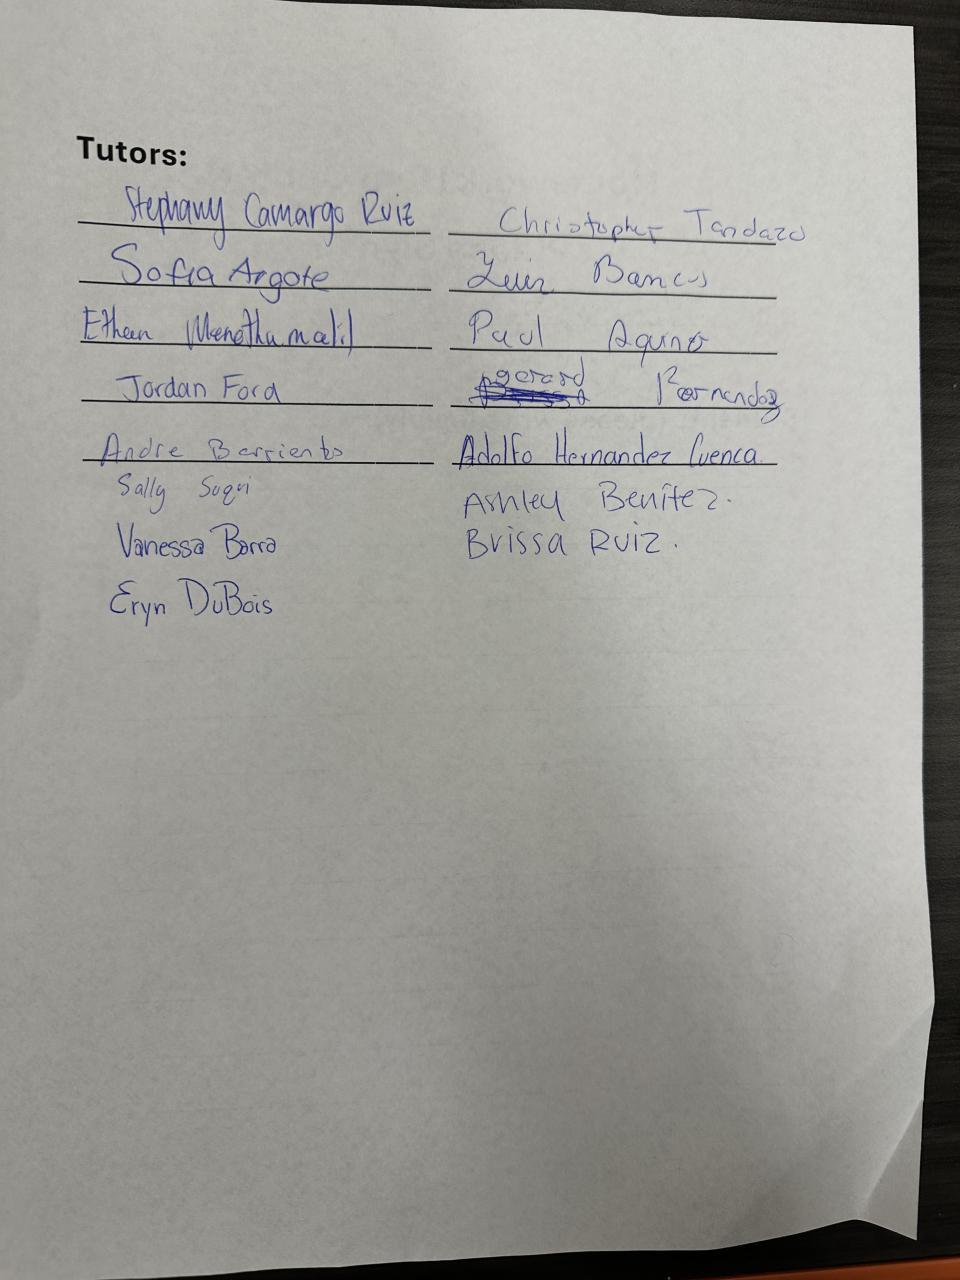 Tutors:
Stephany Camargo Ruiz
Christopher Tandazo
Sofia Argote
Luis Barcos
Ethan Menethumalil
Paul Aquino
Jordan Ford
gerard Fernandez
Andre Barrientos
Adolfo Hernandez Cuenca
Sally Suqui
Ashley Benitez.
Vanessa Barra
Brissa Ruiz.
Eryn DuBois